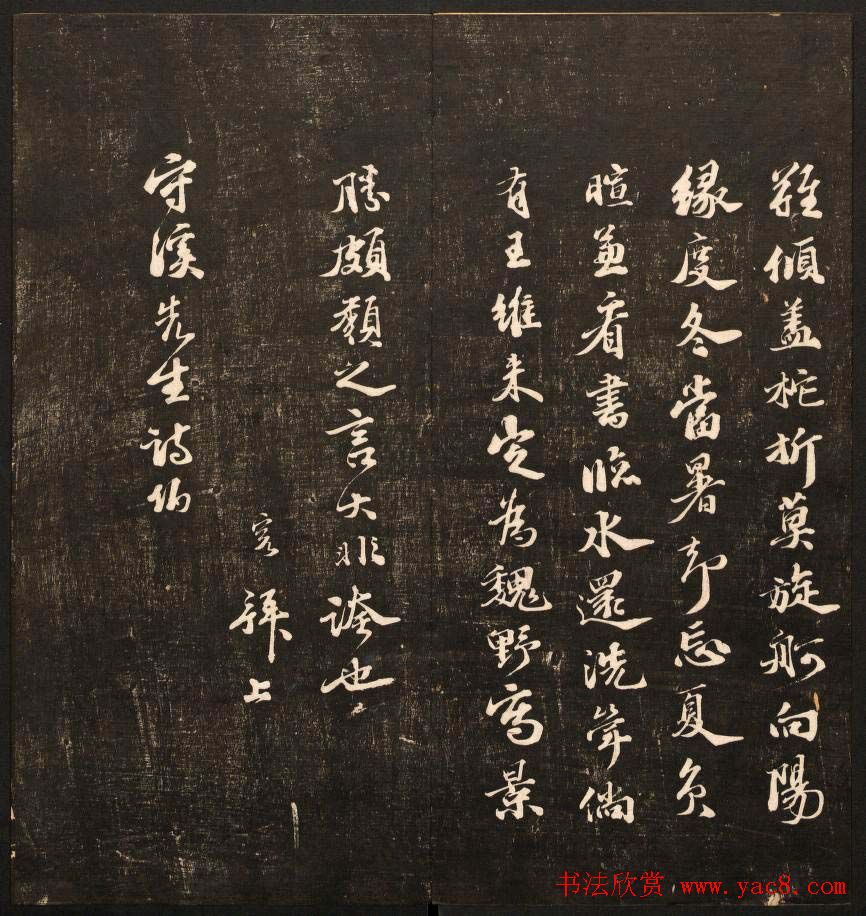 難傾蓋柁折莫旋舸向陽
緣度冬當暑却忘夏負
暄兼看書臨水還洗筆倘
有王維来定為魏野寫景
勝頗類之言大非誇也
寬拜上
守溪先生詩伯
书法欣赏 www.yac8.com